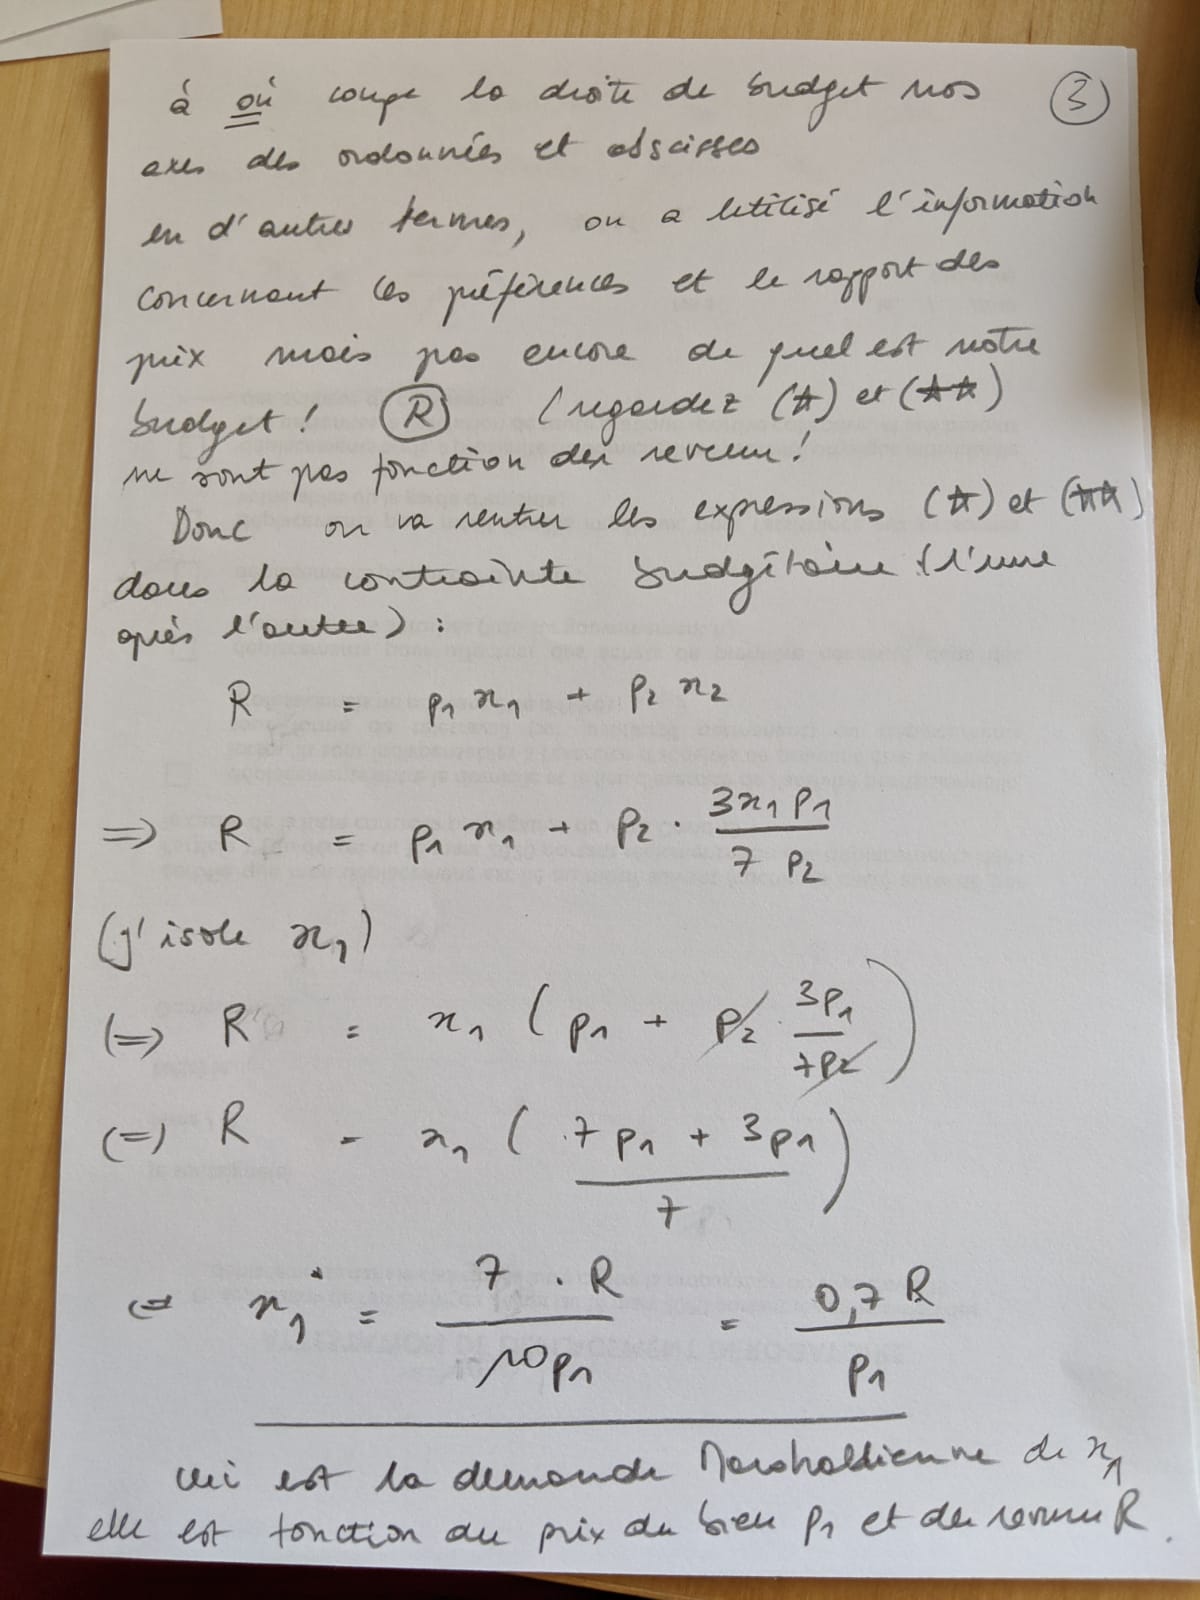 à où coupe la droite de budget nos ③
axes des ordonnées et abscisses
en d'autres termes, on a utilisé l'information
concernant les préférences et le rapport des
prix mais pas encore de quel est notre
budget! Ⓡ (regardez (☆) et (☆☆)
ne sont pas fonction du revenu!
Donc on va rentrer les expressions (☆) et (☆☆)
dans la contrainte budgétaire (l'une
après l'autre) :
R = p₁ x₁ + p₂ x₂
=> R = p₁ x₁ + p₂ · 3x₁ p₁ / 7 p₂
(j'isole x₁)
(=>) R = x₁ ( p₁ + p₂ · 3p₁ / 7p₂ )
(=) R = x₁ ( 7p₁ + 3p₁ / 7 )
(=) x₁* = 7 · R / 10p₁ = 0,7 R / p₁
ceci est la demande Marshallienne de x₁
elle est fonction du prix du bien p₁ et du revenu R.